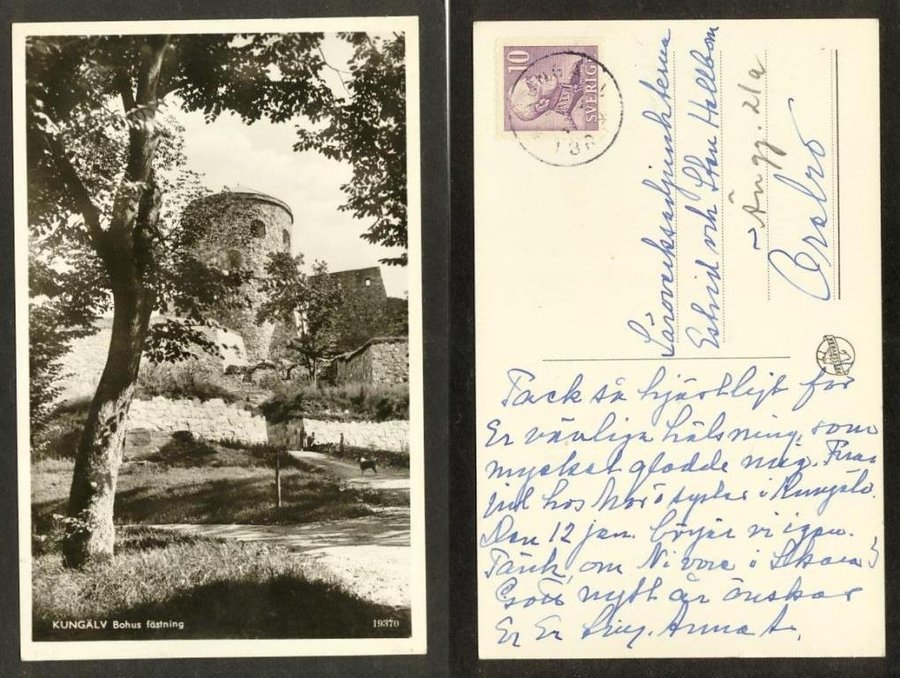 KUNGÄLV Bohus fästning
19370
10
SVERIGE
Läroverksadjunkterna
Estrid och Sten Hallbom
Ängg. 21a
Örebro
Tack så hjärtligt för
Er vänliga hälsning, som
mycket gladde mig. Firar
jul hos Mor o syster i Kungälv.
Den 12 jan. börjar vi igen.
Tänk om Ni vore i Skara!
Gott nytt år önskar
Er Er Anna